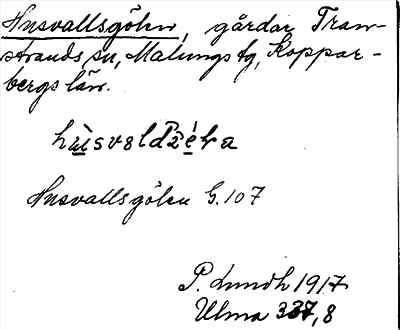 Husvallsgölen, gårdar Tran-
strands sn, Malungs tg, Koppar-
bergs län.
Husvallsgölen G. 107
P. Lundh 1917
Ulma 337, 8